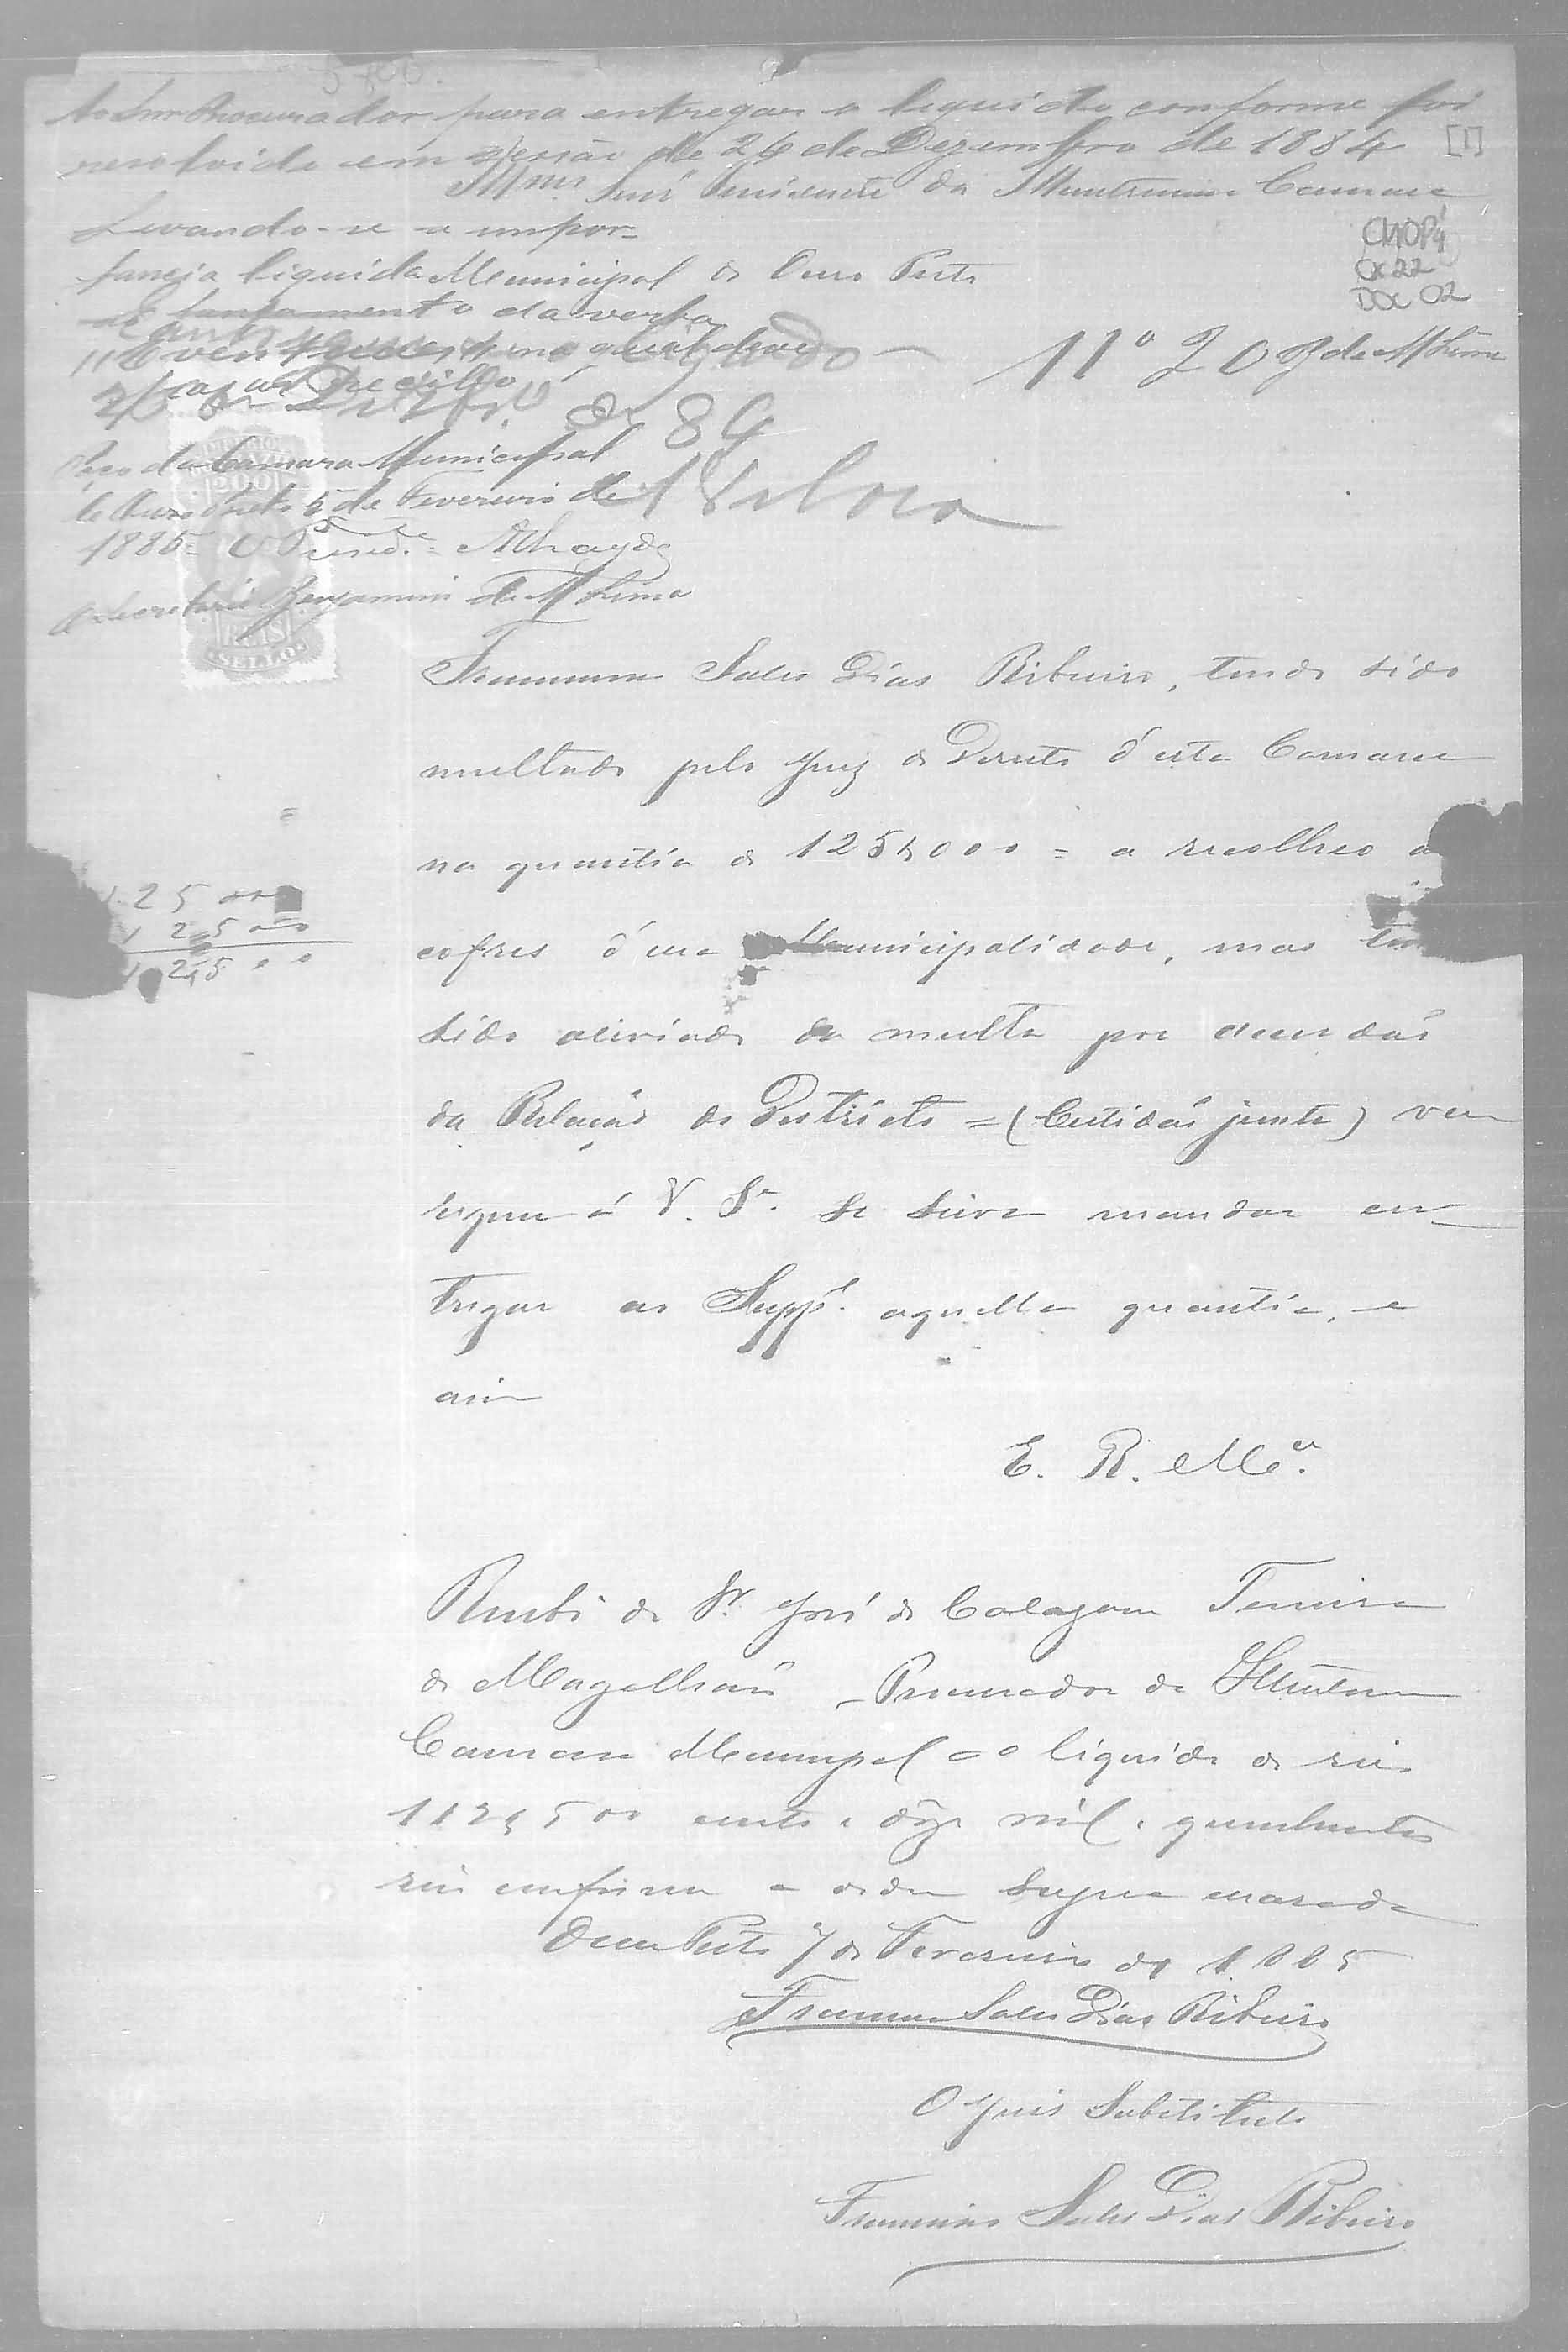 Ao Snr Procurador para entregar o liquido conforme foi
resolvido em sessão de 24 de Dezembro de 1884
[1]
Illmo. Snr Presidente da Illustrissima Camara
Levando-se a impor=
tancia liquida
Municipal de Ouro Preto
lançamento da verba
Eventuaes, na qual deve
passar recibo
CMOP
CX 22
DOC 02
Nº 20 B de M Lima
de 84
Paço da Camara Municipal
de Ouro Preto 5 de Fevereiro de
1885= O Presid.e= Athayde
O Secretario Benjamim de M Lima
200
REIS
SELLO
Francisco Sales Dias Ribeiro, tendo sido
multado pelo Juiz de Direito d'esta Comarca
na quantia de 125$000= a recolheo a
125
12 5
112 5
cofres d'essa Municipalidade, mas
sido aliviado da multa por accordão
da Relação do Districto =(Certidão junta) vem
requer á V. Sª. se sirva mandar en
tregar ao Suppe. aquella quantia, e
assim
E. R. Mcê.
Recebi do Sr. José de Calazans Ferreira
de Magalhães Procurador da Illustrissima
Camara Municipal o liquido de reis
112$500 cento e doze mil e quinhentos
reis conforme a ordem supra
Ouro Preto 7 de Fevereiro de 1885
Francisco Sales Dias Ribeiro
O Juis Substituto
Francisco Sales Dias Ribeiro